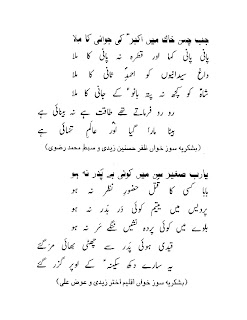 جب چمن خاک میں اکبرؑ کی جوانی کا ملا
پانی پانی کہا اور قطرہ نہ پانی کا ملا
داغ سیدانیوں کو احمدِؐ ثانی کا ملا
شاہؑ کو کچھ نہ پتہ بانوؑ کے جانی کا ملا
رو رو فرماتے تھے طاقت ہے نہ بینائی ہے
بیٹا مارا گیا اور عالمِ تنہائی ہے
(بشکریہ سوز خواں ظفر حسنین زیدی و سبط محمد رضوی)
یارب صغیر سن میں کوئی بے پدر نہ ہو
بابا کسی کا قتل حضورِ نظر نہ ہو
پردیس میں یتیم کوئی در بدر نہ ہو
بلوے میں کوئی پردہ نشیں ننگے سَر نہ ہو
قیدی ہوئی پدر سے چھٹی بھائی مر گئے
یہ سارے دکھ سکینہؑ کے اوپر گزر گئے
(بشکریہ سوز خواں اقلیم اختر زیدی و عوض علی)